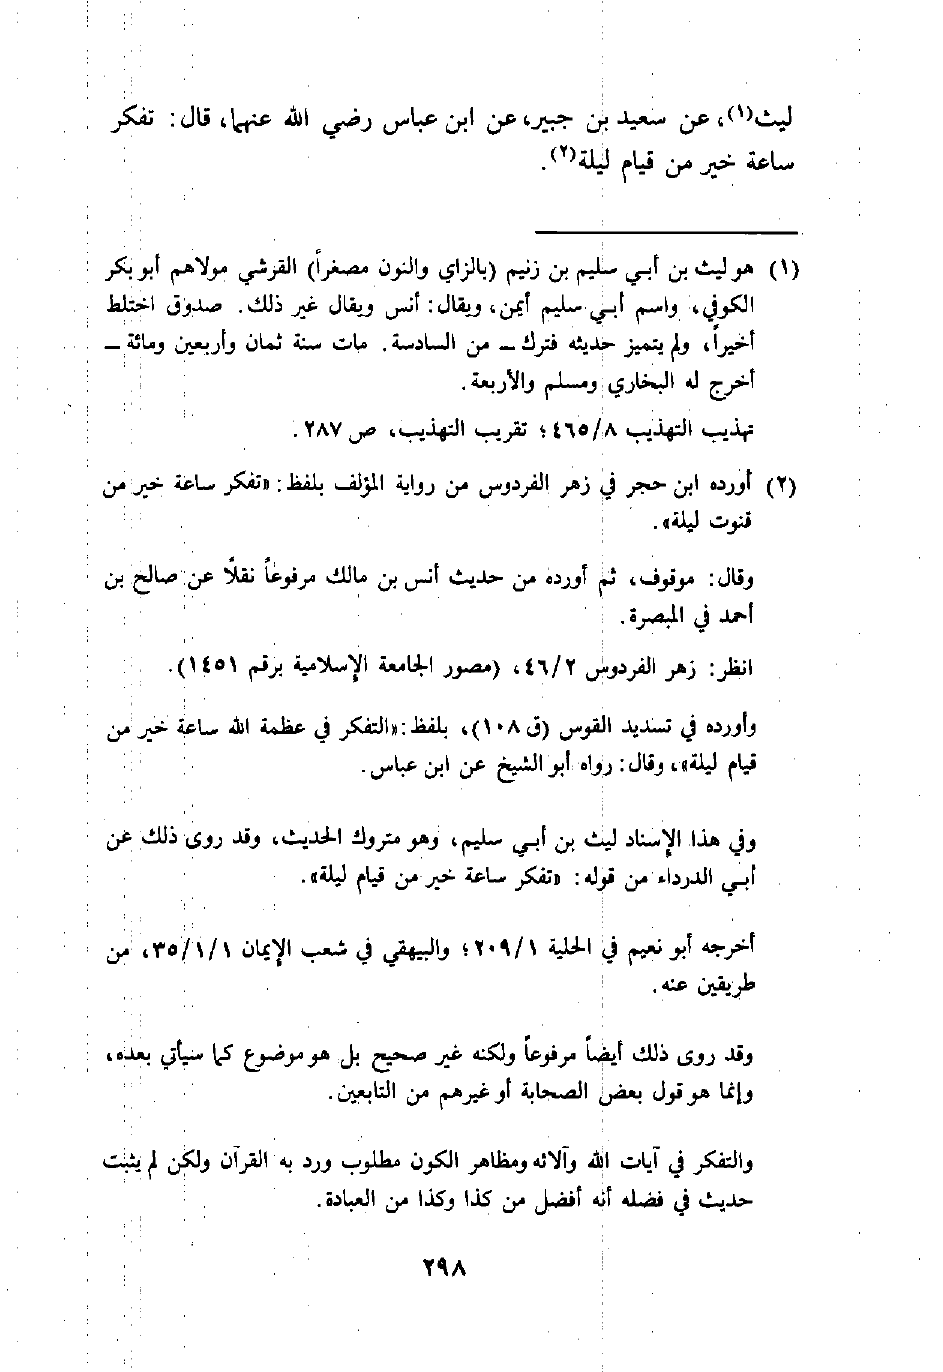 ليث(١)، عن سعيد بن جبير، عن ابن عباس رضي الله عنهما، قال: تفكر
ساعة خير من قيام ليلة(٢).
(١) هو ليث بن أبي سليم بن زنيم (بالزاي والنون مصغراً) القرشي مولاهم أبو بكر
الكوفي، واسم أبي سليم أيمن، ويقال: أنس ويقال غير ذلك. صدوق اختلط
أخيراً، ولم يتميز حديثه فترك ـ من السادسة. مات سنة ثمان وأربعين ومائة ـ
أخرج له البخاري ومسلم والأربعة.
تهذيب التهذيب ٤٦٥/٨؛ تقريب التهذيب، ص ٢٨٧.
(٢) أورده ابن حجر في زهر الفردوس من رواية المؤلف بلفظ: «تفكر ساعة خير من
قنوت ليلة».
وقال: موقوف، ثم أورده من حديث أنس بن مالك مرفوعاً نقلًا عن صالح بن
أحمد في المبصرة.
انظر: زهر الفردوس ٤٦/٢، (مصور الجامعة الإسلامية برقم ١٤٥١).
وأورده في تسديد القوس (ق ١٠٨)، بلفظ: «التفكر في عظمة الله ساعة خير من
قيام ليلة»، وقال: رواه أبو الشيخ عن ابن عباس.
وفي هذا الإسناد ليث بن أبي سليم، وهو متروك الحديث، وقد روى ذلك عن
أبي الدرداء من قوله: «تفكر ساعة خير من قيام ليلة».
أخرجه أبو نعيم في الحلية ٢٠٩/١؛ والبيهقي في شعب الإيمان ٣٥/١/١، من
طريقين عنه.
وقد روى ذلك أيضاً مرفوعاً ولكنه غير صحيح بل هو موضوع كما سيأتي بعده،
وإنما هو قول بعض الصحابة أو غيرهم من التابعين.
والتفكر في آيات الله وآلائه ومظاهر الكون مطلوب ورد به القرآن ولكن لم يثبت
حديث في فضله أنه أفضل من كذا وكذا من العبادة.
٢٩٨